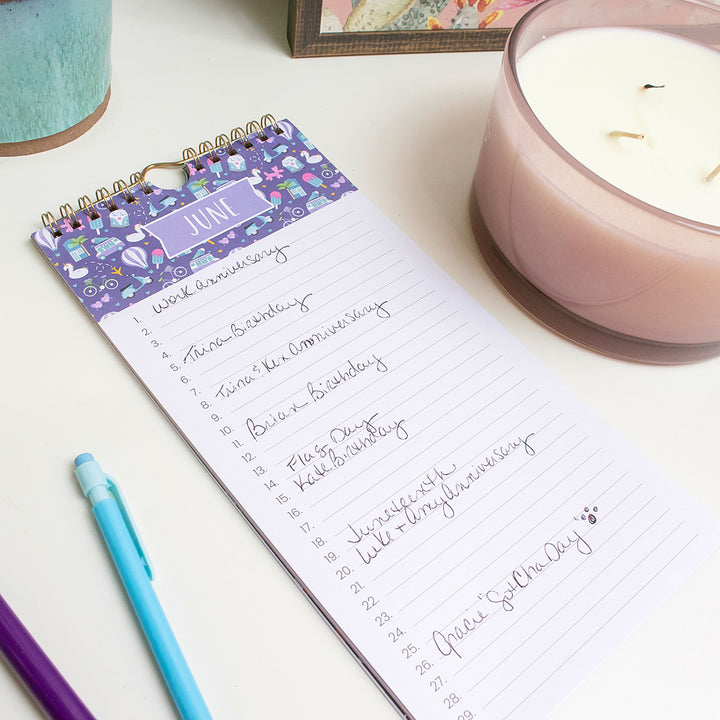 JUNE
1. Work anniversary
2.
3.
4.
5. Trina Birthday
6.
7.
8. Trina & Kex Anniversary
9.
10.
11. Brian Birthday
12.
13.
14. Flag Day
15. Kate Birthday
16.
17.
18.
19. Juneteenth
20. Luke + Amy Anniversary
21.
22.
23.
24.
25.
26. Gracie "Gotcha Day"
27.
28.
29.